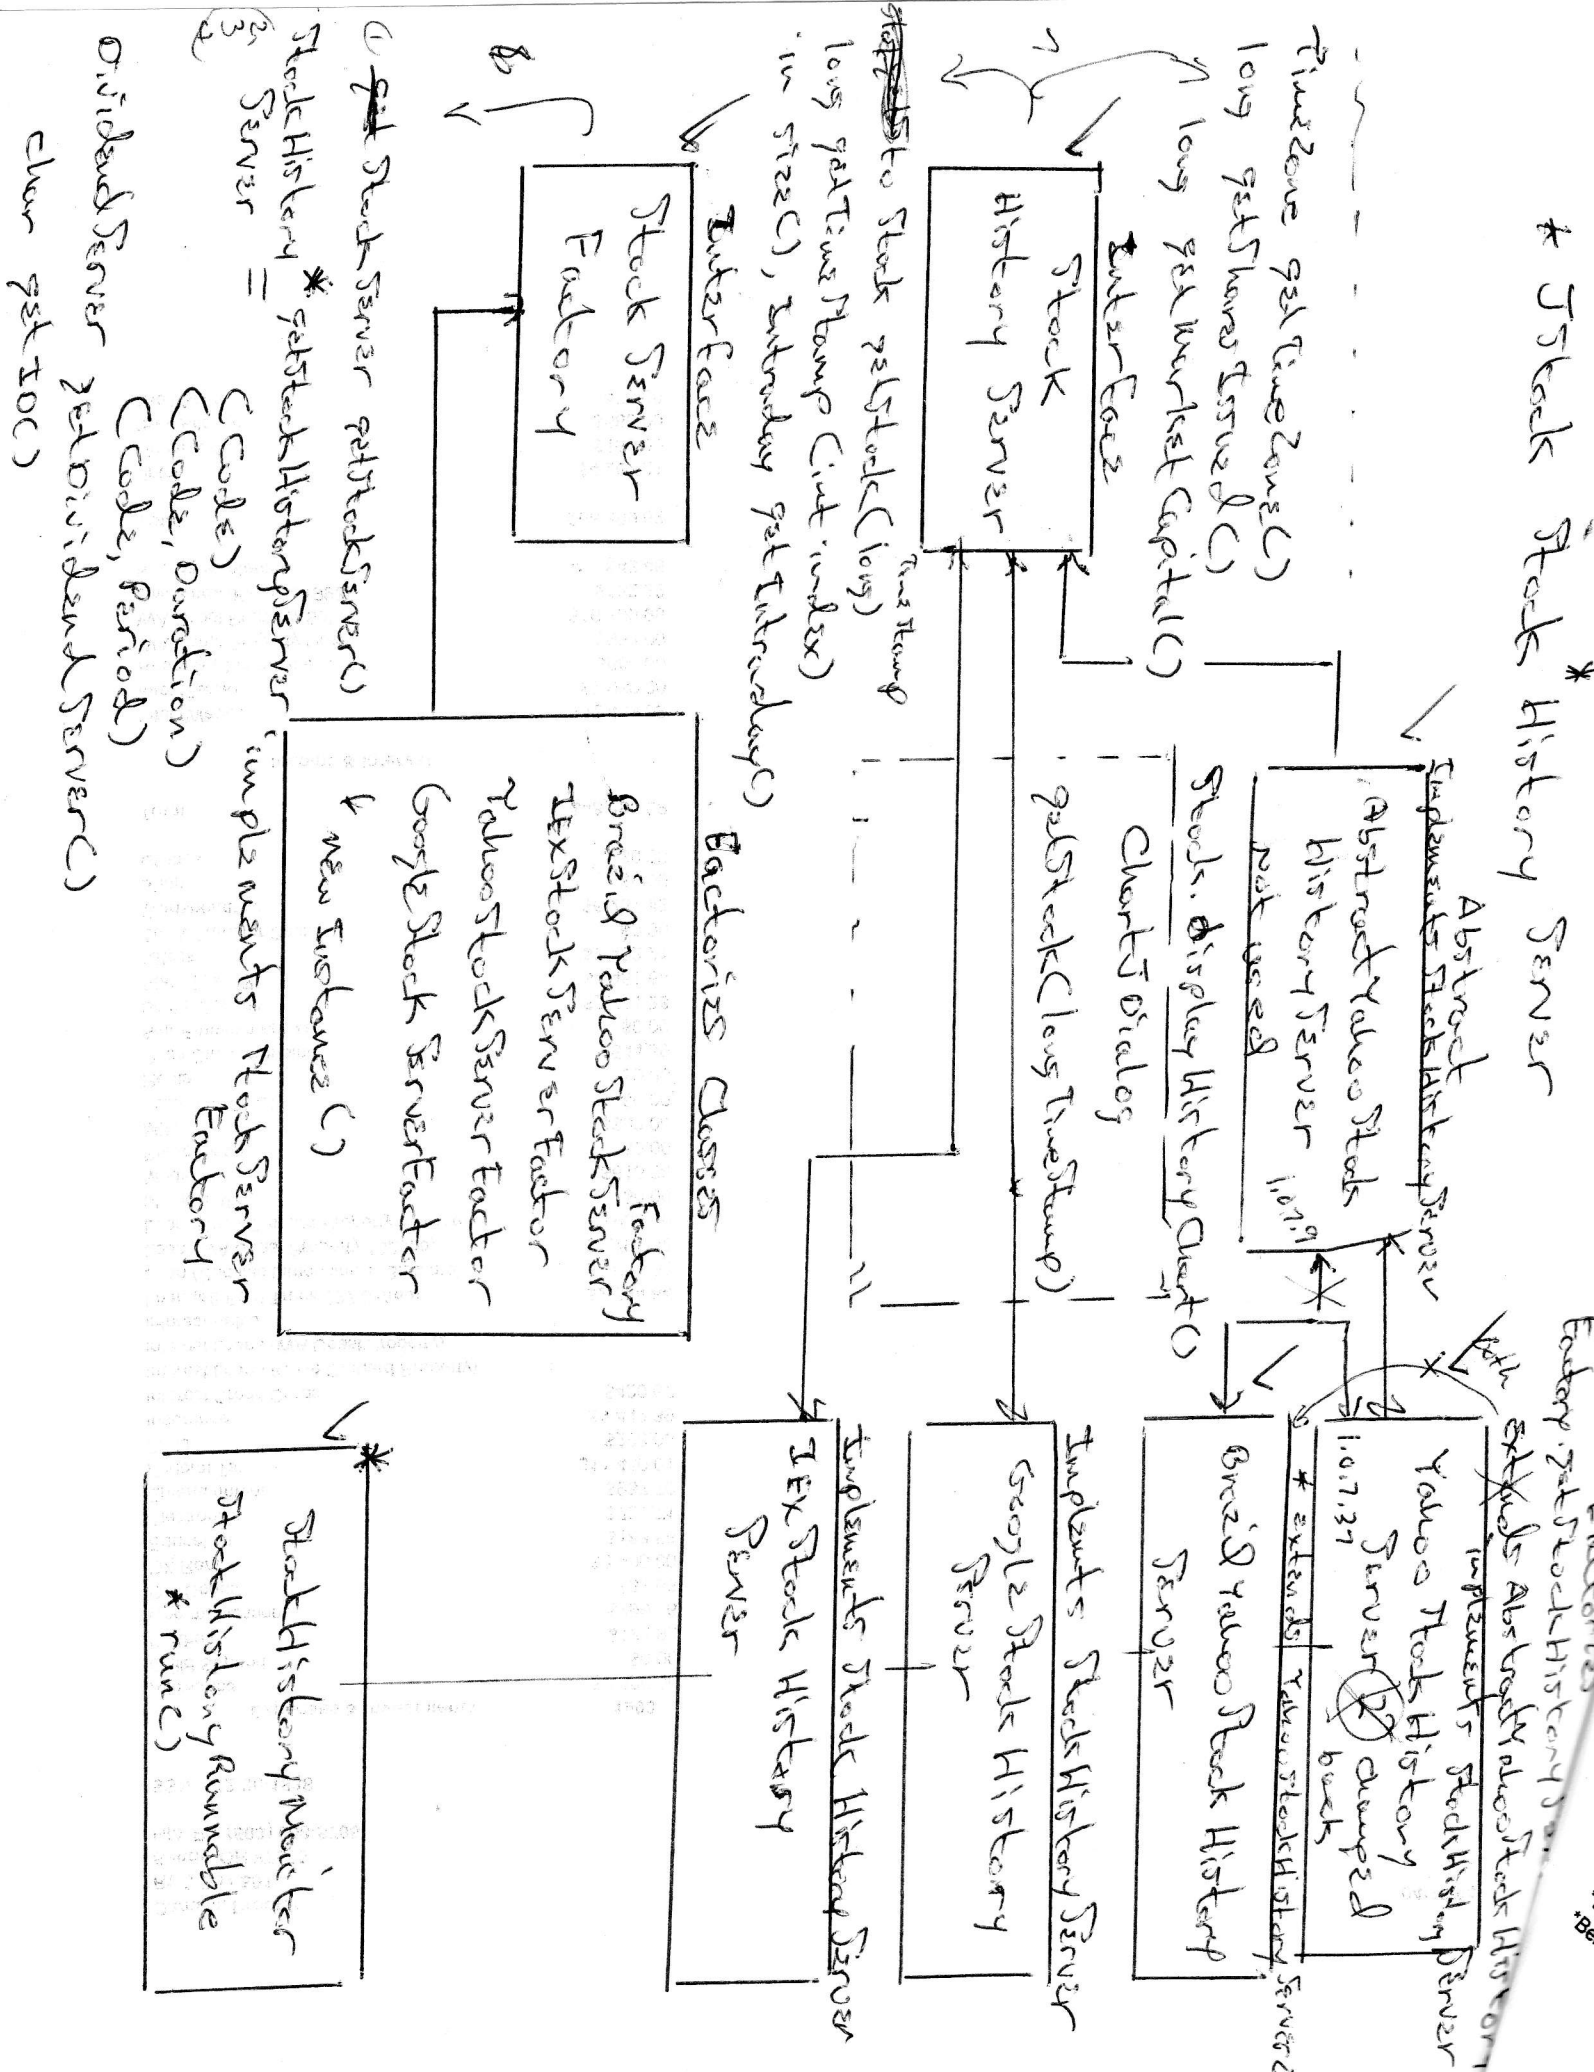 * JStock Stock * History Server
TimeZone getTimeZone()
long getSharesIssued()
long getMarketCapital()
Interface
Stock
History Server
to Stock getStock(long)
TimeStamp
long getTimeStamp(int index)
in size(), Intraday getIntraday()
Interface
Stock Server
Factory
& 
① get StockServer getStockServer()
StockHistory * getStockHistoryServer
Server = (Code)
(Code, Duration)
(Code, Period)
DividendServer getDividendServer()
char getID()
Abstract
Implements StockHistoryServer
AbstractYahooStock
HistoryServer 1.0.7.9
not used
Stock.displayHistoryChart()
ChartJDialog
getStock(long TimeStamp)
Factories Classes
Factory
BrazilYahooStockServer
IEXStockServerFactor
YahooStockServerFactor
GoogleStockServerFactor
* newInstance()
implements StockServer
Factory
Factory.getStockHistory
both
extends AbstractYahooStockHistory
implements StockHistoryServer
Yahoo StockHistory
Server 2 changed
1.0.7.37 back
* extends YahooStockHistoryServer
BrazilYahooStockHistory
Server
Implents StockHistoryServer
GoogleStockHistory
Server
Implements StockHistoryServer
IEXStock History
Server
*
StockHistoryMonitor
StockHistoryRunnable
* run()